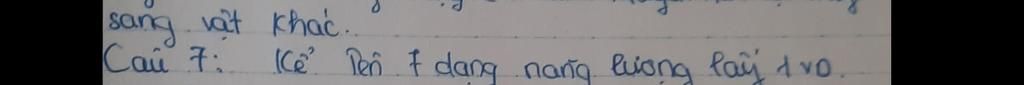 sang vật khác.
Câu 7: Kể tên 7 dạng năng lượng lấy 1 VD.